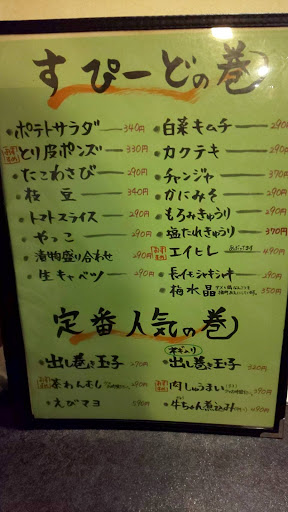 すぴーどの巻
ポテトサラダ 340円
おすすめ とり皮ポンズ 330円
たこわさび 290円
枝豆 340円
トマトスライス 290円
やっこ 290円
漬物盛り合わせ 290円
生キャベツ 290円
白菜キムチ 290円
カクテキ 290円
チャンジャ 370円
かにみそ 290円
もろみきゅうり 290円
塩だれきゅうり 390円
おすすめ エイヒレ 490円
長イモシャキシャキ 290円
梅水晶 350円
定番人気の巻
出し巻き玉子 290円
おすすめ 茶わんむし
えびマヨ 390円
ネギ入り 出し巻き玉子 340円
おすすめ 肉しゅうまい
牛ちゃん煮込み